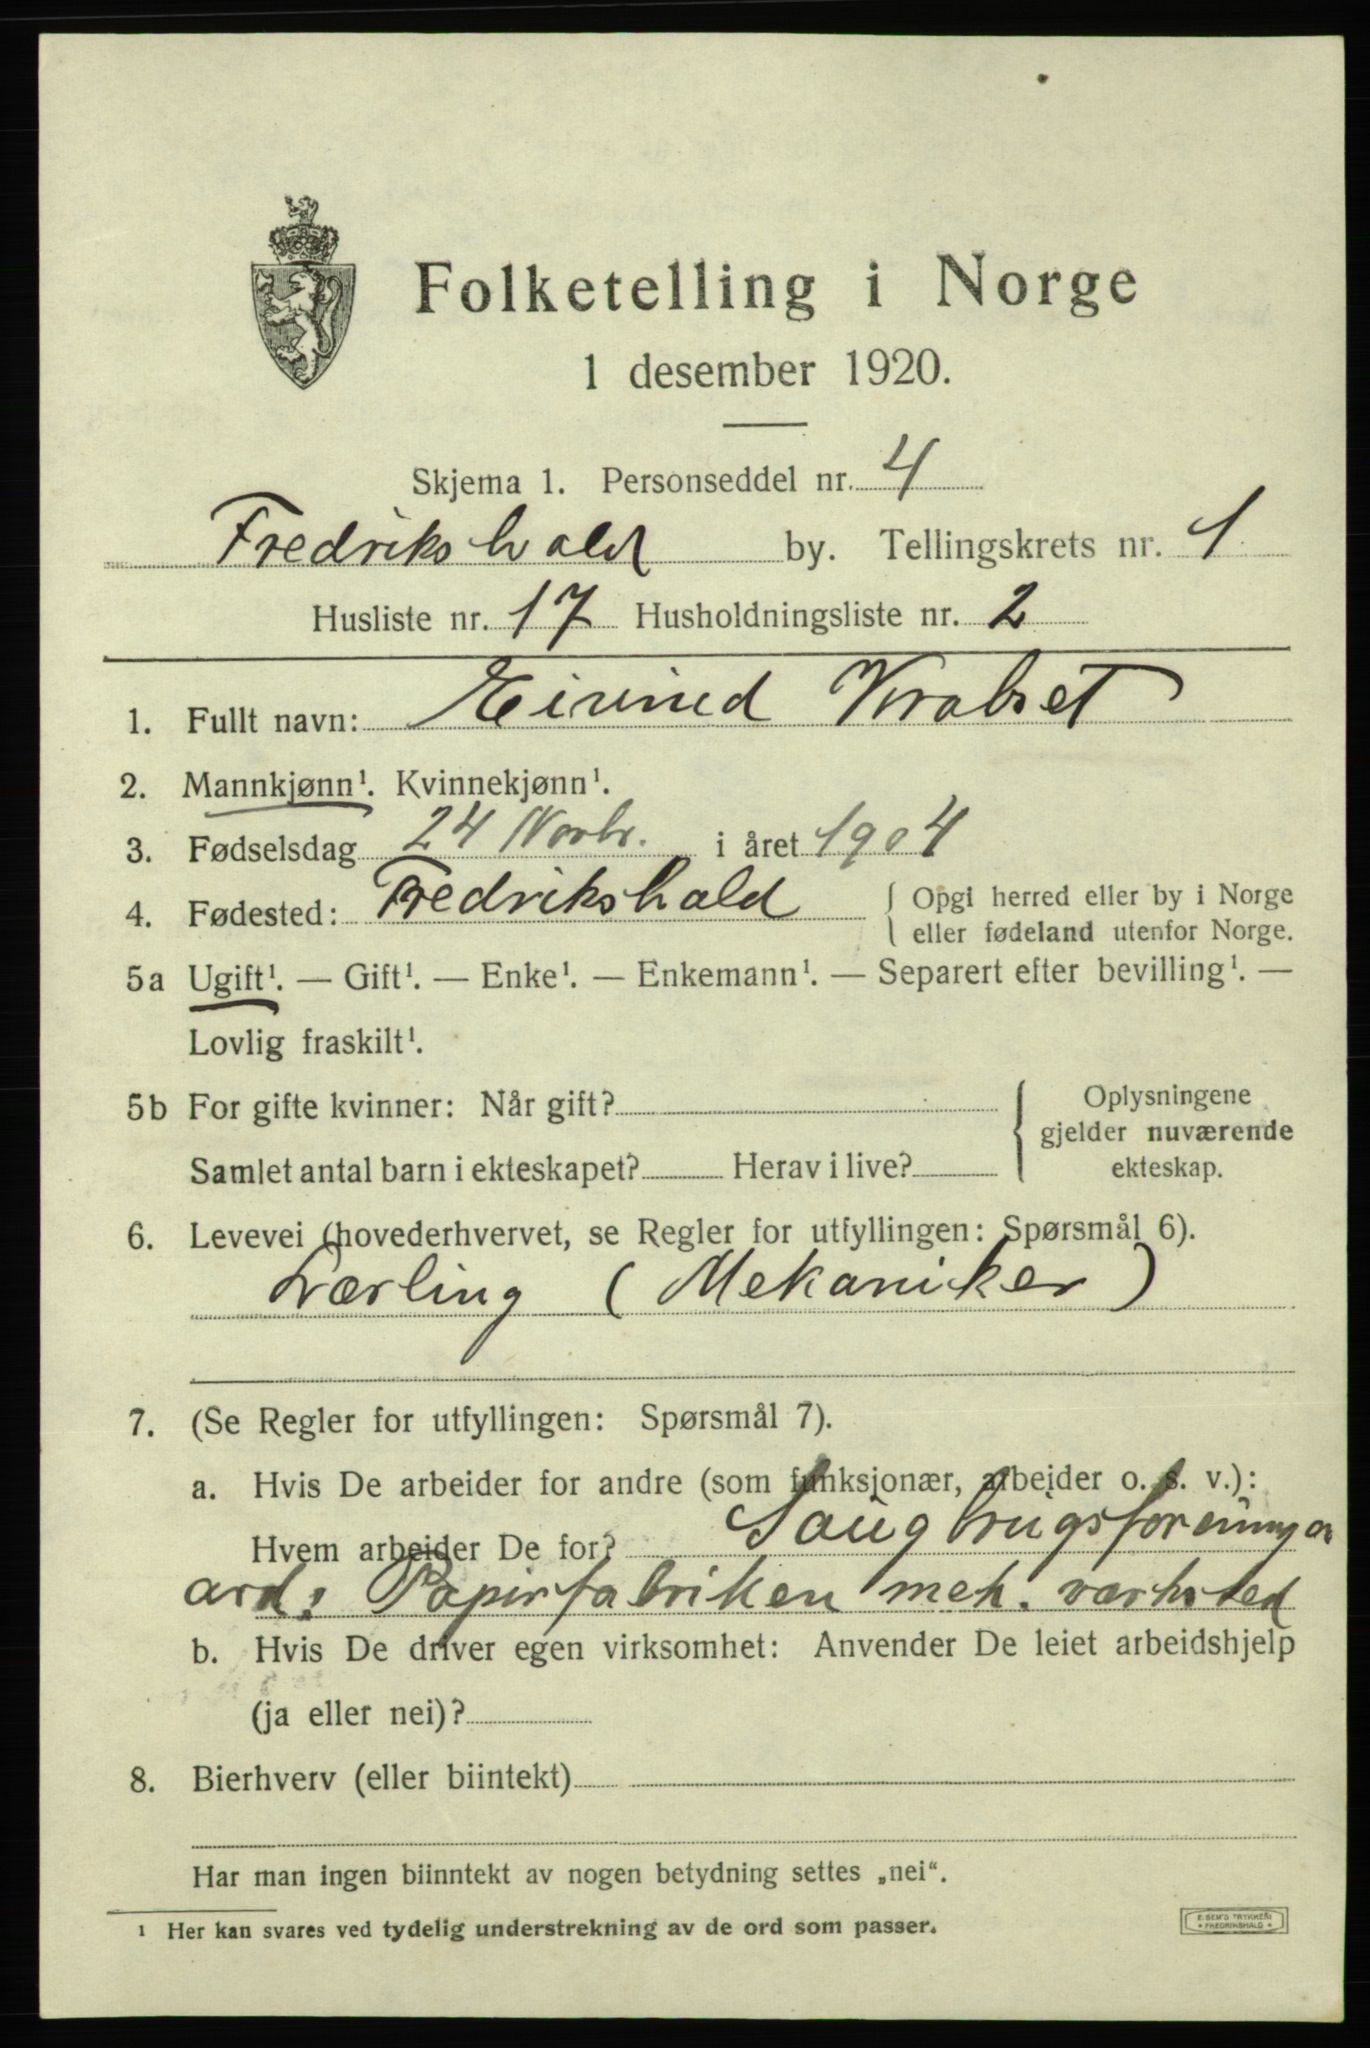 Folketelling i Norge
1 desember 1920.
Skjema 1. Personseddel nr. 4
Fredrikshald by. Tellingskrets nr. 1
Husliste nr. 17 Husholdningsliste nr. 2
1. Fullt navn: Eivind Krabset
2. Mannkjønn¹. Kvinnekjønn¹.
3. Fødselsdag 24 Novbr. i året 1904
4. Fødested: Fredrikshald { Opgi herred eller by i Norge
eller fødeland utenfor Norge.
5a Ugift¹. — Gift¹. — Enke¹. — Enkemann¹. — Separert efter bevilling¹. —
Lovlig fraskilt¹.
5b For gifte kvinner: Når gift? { Oplysningene
gjelder nuværende
Samlet antal barn i ekteskapet? Herav i live? ekteskap.
6. Levevei (hovederhvervet, se Regler for utfyllingen: Spørsmål 6).
Lærling (Mekaniker)
7. (Se Regler for utfyllingen: Spørsmål 7).
a. Hvis De arbeider for andre (som funksjonær, arbeider o. s. v.):
Hvem arbeider De for? Saugbrugsforeningen
ard: Papirfabriken mek. værksted
b. Hvis De driver egen virksomhet: Anvender De leiet arbeidshjelp
(ja eller nei)?
8. Bierhverv (eller biintekt)
Har man ingen biinntekt av nogen betydning settes „nei“.
¹ Her kan svares ved tydelig understrekning av de ord som passer.
E. SEM'S TRYKKERI
* FREDRIKSHALD *